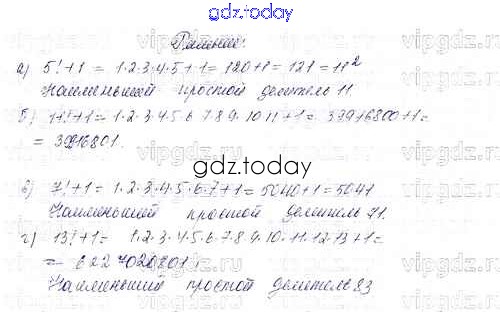 gdz.today
Решение:
а) 5!+1 = 1·2·3·4·5+1 = 120+1 = 121 = 11²
Наименьший простой делитель 11
б) 11!+1 = 1·2·3·4·5·6·7·8·9·10·11+1 = 39916800+1=
= 39916801.
gdz.today
в) 7!+1 = 1·2·3·4·5·6·7+1 = 5040+1 = 5041
Наименьший простой делитель 71.
г) 13!+1 = 1·2·3·4·5·6·7·8·9·10·11·12·13+1=
= 6227020801.
Наименьший простой делитель 83
gdz.today